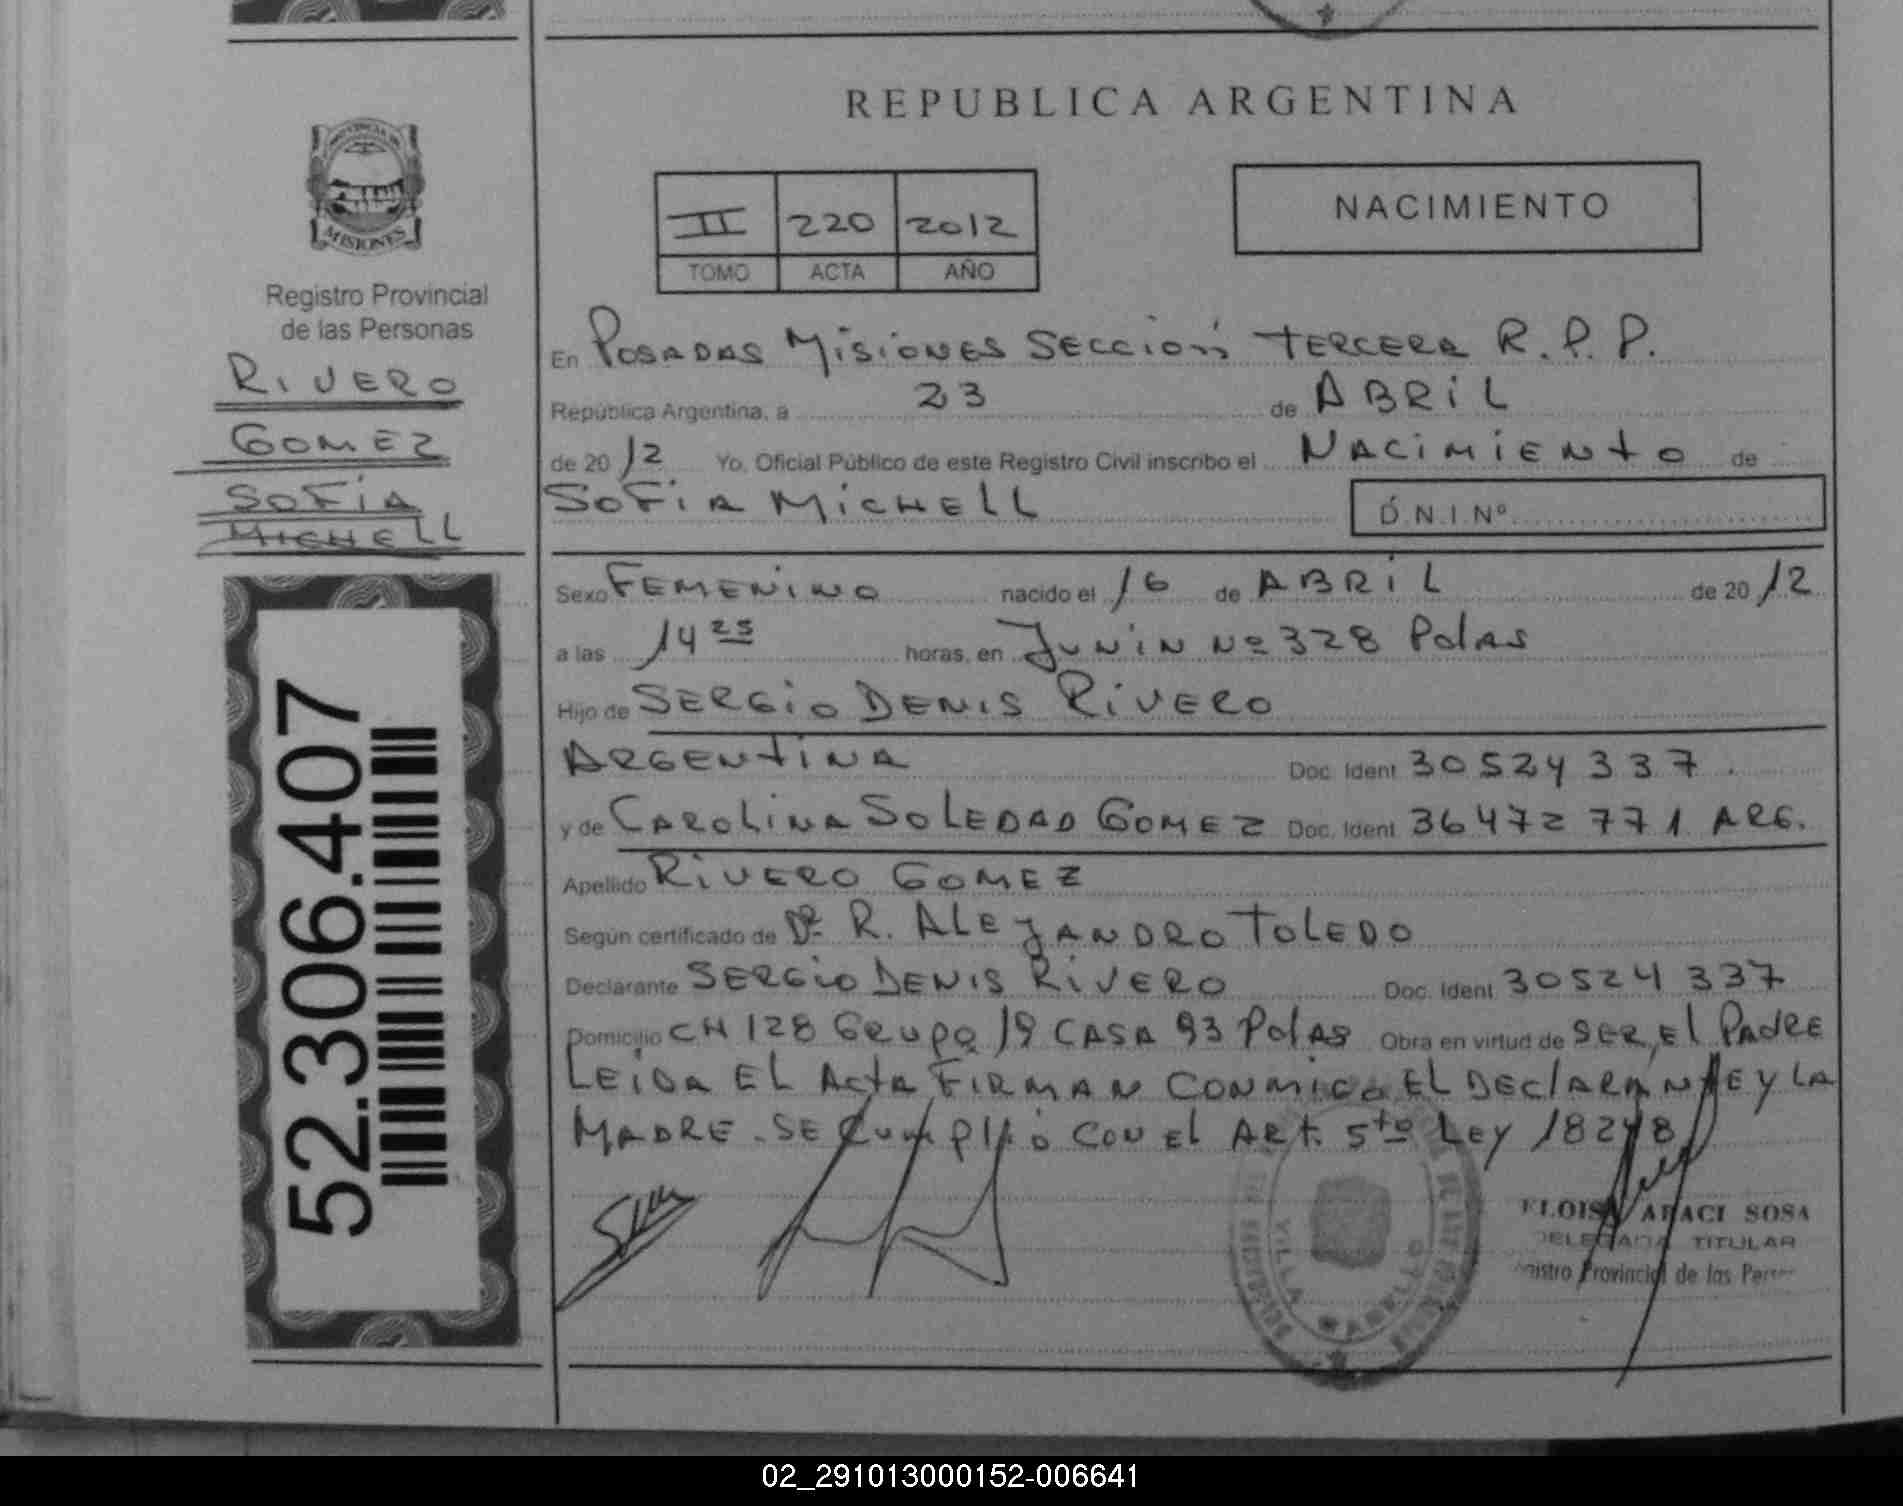 REPUBLICA ARGENTINA
MISIONES
Registro Provincial
de las Personas
RIVERO
GOMEZ
SOFíA
MICHELL
52.306.407
II 220 2012
TOMO ACTA AÑO
NACIMIENTO
En POSADAS MISIONES SECCIÓN TERCERA R.P.P.
República Argentina, a 23 de ABRIL
de 2012 Yo, Oficial Público de este Registro Civil inscribo el NACIMIENTO de
SOFíA MICHELL D.N.I.Nº
Sexo FEMENINO nacido el 16 de ABRIL de 2012
a las 14 25 horas, en JUNIN Nº 328 Pdas
Hijo de SERGIO DENIS RIVERO
ARGENTINA Doc. Ident 30524337
y de CAROLINA SOLEDAD GOMEZ Doc. Ident 36472771 ARG.
Apellido RIVERO GOMEZ
Según certificado de Dr R. ALEJANDRO TOLEDO
Declarante SERGIO DENIS RIVERO Doc. Ident 30524337
Domicilio CH 128 GRUPO 19 CASA 93 Pdas Obra en virtud de SER El PADRE
LEIDA EL ACTA FIRMAN CONMIGO EL DECLARANTE Y LA
MADRE. SE CUMPLIÓ CON EL ART. 5to LEY 18248
VILLA CABELLO
ELOISA ARACI SOSA
DELEGADA TITULAR
Registro Provincial de las Personas
02_291013000152-006641